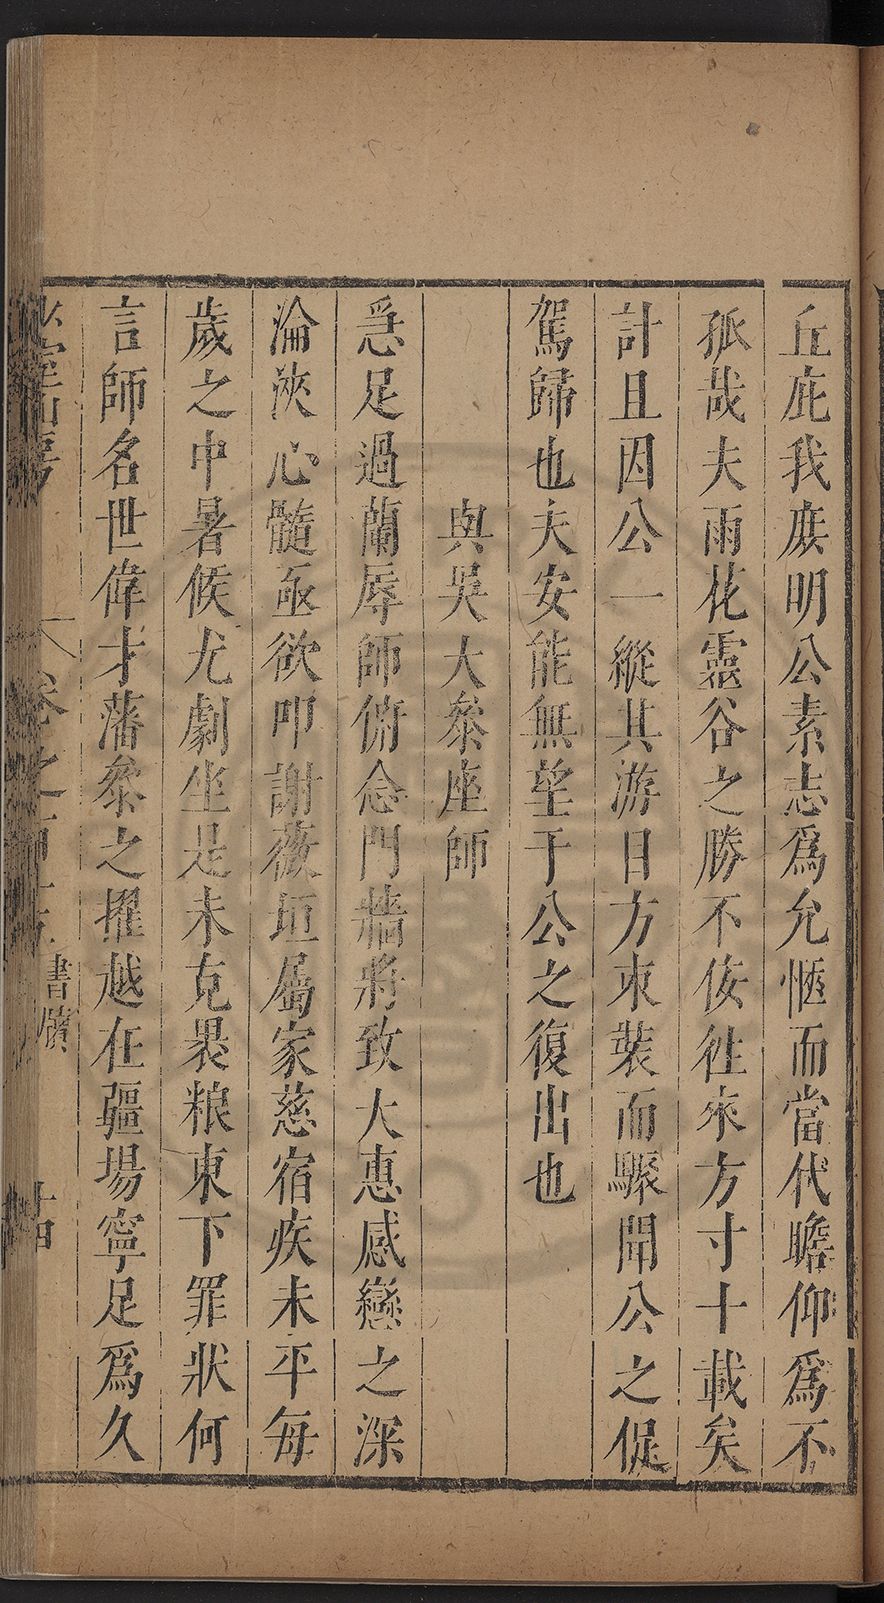 丘庇我庶明公素志爲允愜而當代瞻仰爲不
孤哉夫雨花靈谷之勝不佞徃來方寸十載矣
計且因公一縱其游目方束裝而驟聞公之促
駕歸也夫安能無望于公之復出也
與吳大叅座師
急足過蘭辱師俯念門牆將致大惠感戀之深
淪浹心髓亟欲叩謝薇垣屬家慈宿疾未平每
歲之中暑候尤劇坐是未克褁粮東下罪狀何
言師名世偉才藩叅之擢越在疆場寧足爲久
卷之 書牘 十四